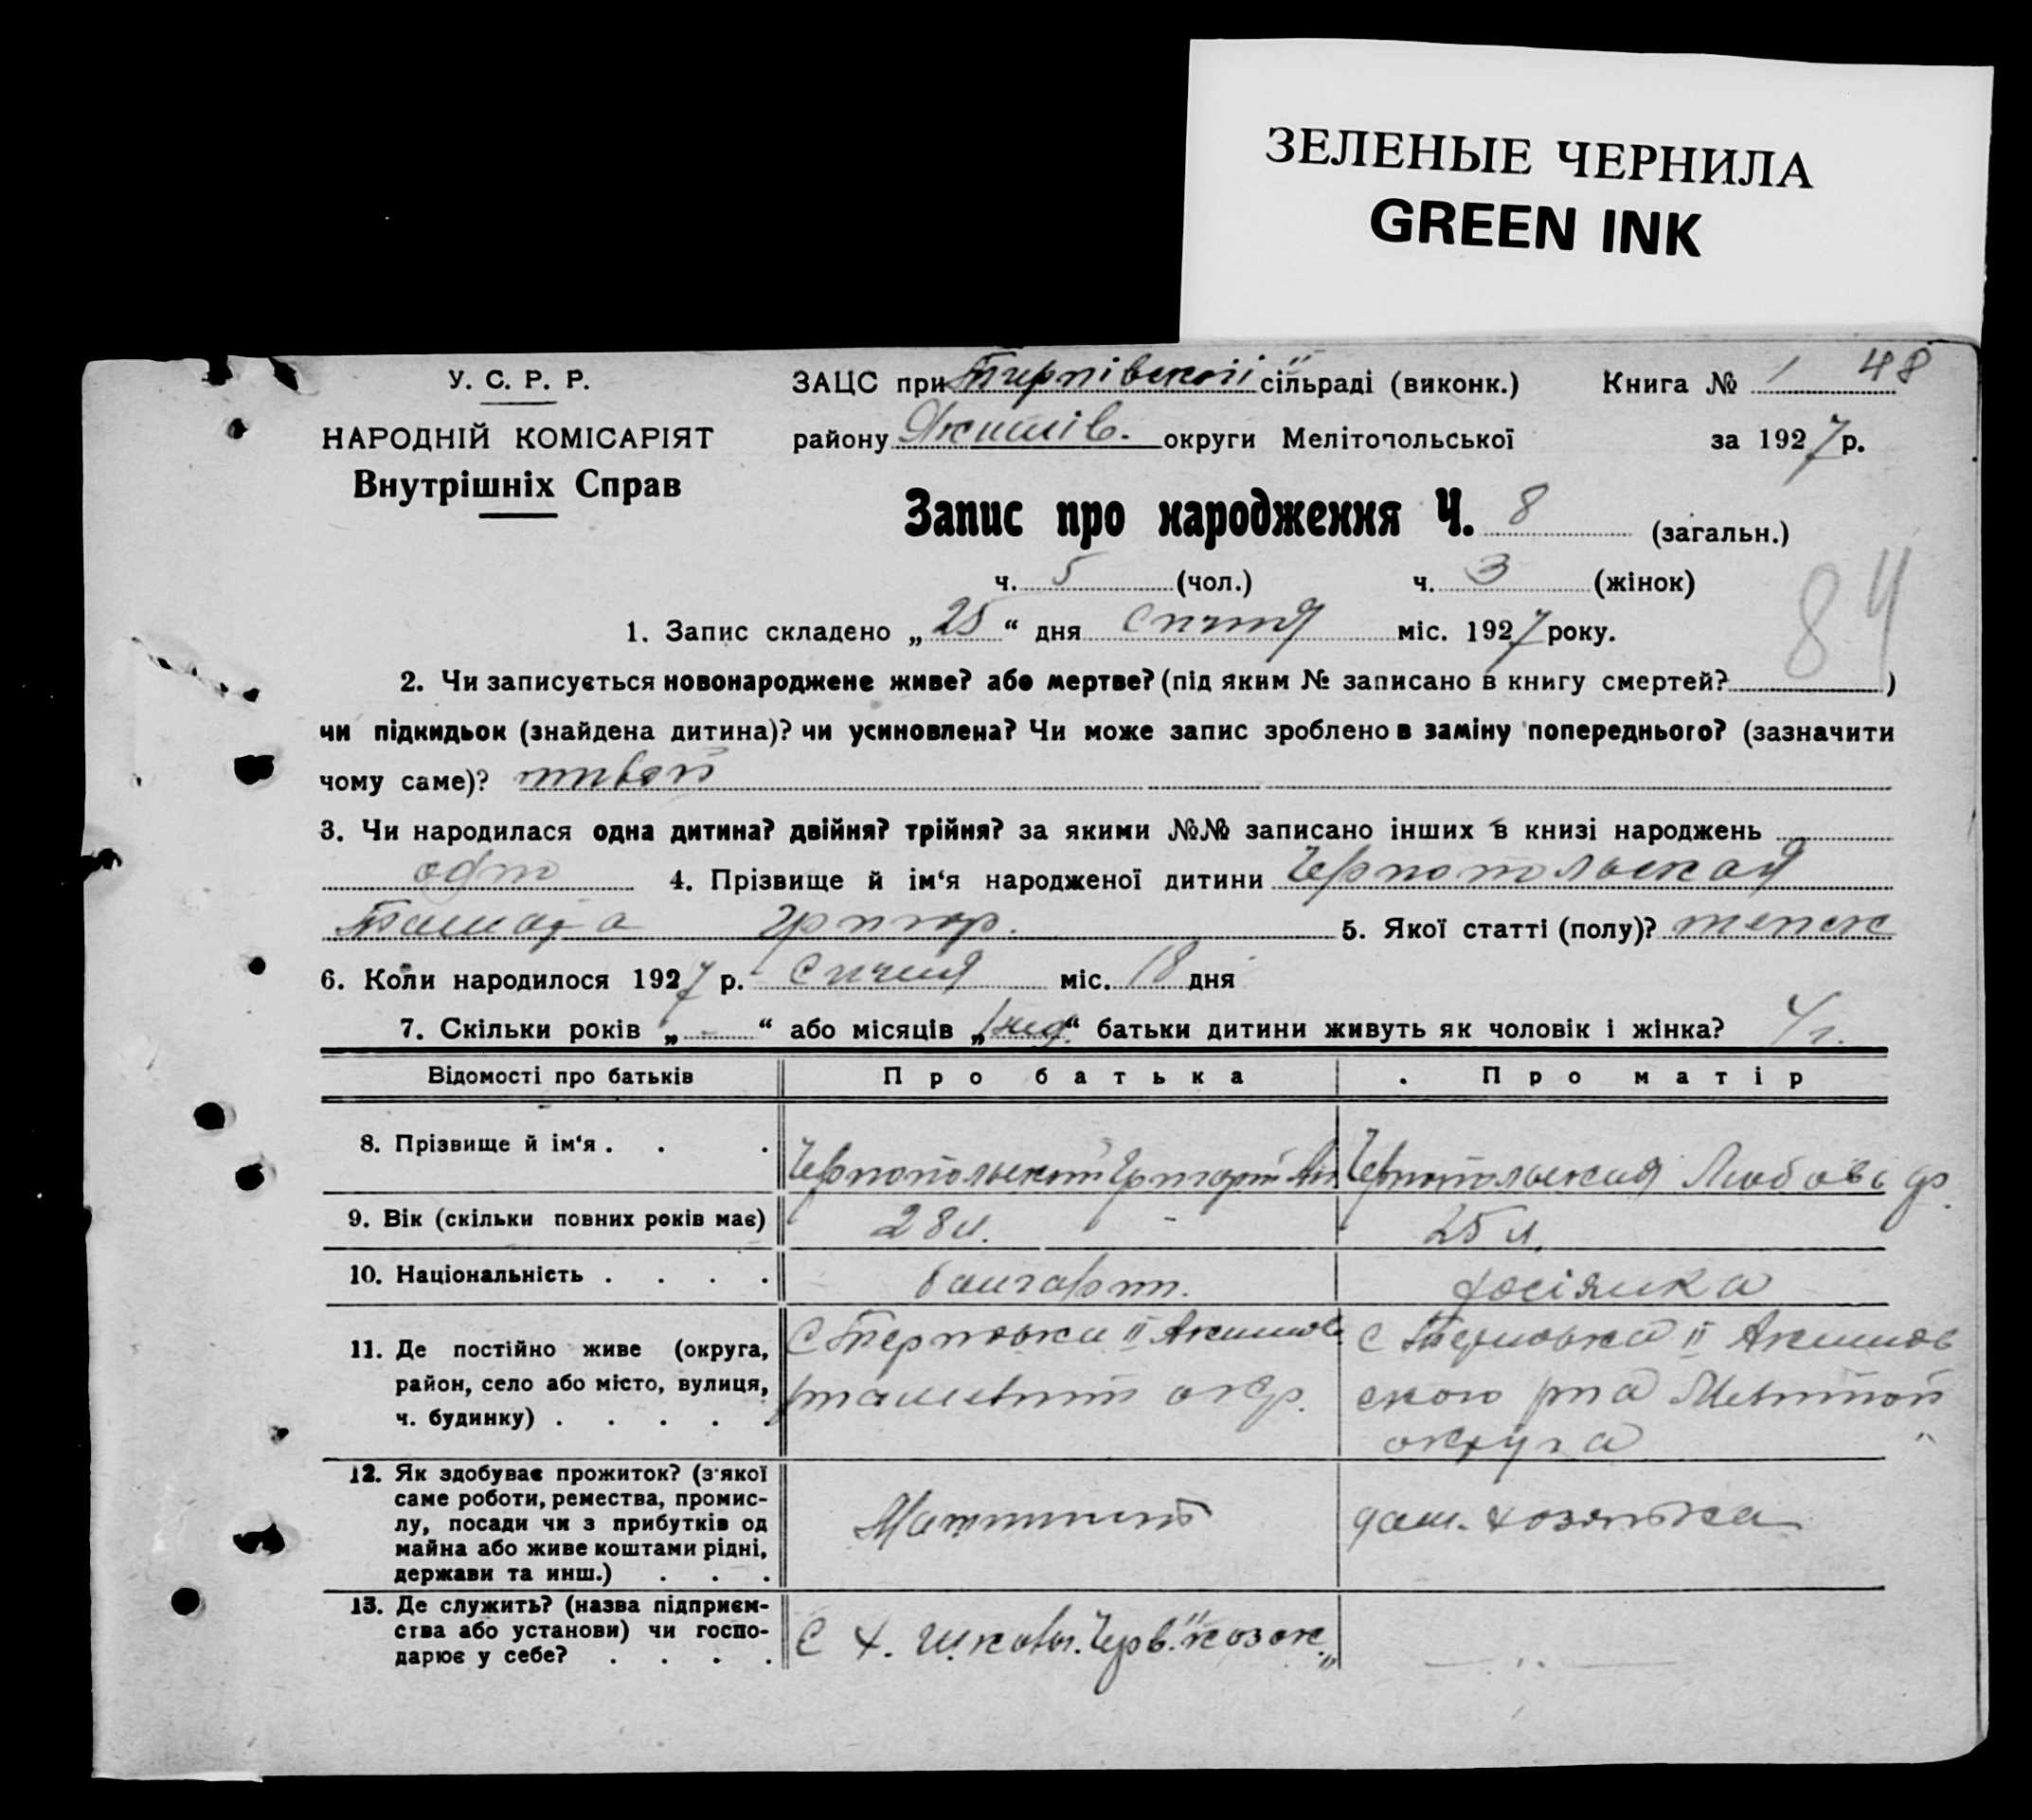 ЗЕЛЕНЫЕ ЧЕРНИЛА
GREEN INK
У. С. Р. Р.
НАРОДНІЙ КОМІСАРІЯТ
Внутрішніх Справ
ЗАЦС при сільраді (виконк.) Книга № 1 48
району Якимів. округи Мелітопольської за 1927 р.
Запис про народження Ч. 8 (загальн.)
ч. 5 (чол.) ч. 3 (жінок)
84
1. Запис складено „25“ дня Січня міс. 1927 року.
2. Чи записується новонароджене живе? або мертве? (під яким № записано в книгу смертей? )
чи підкидьок (знайдена дитина)? чи усиновлена? Чи може запис зроблено в заміну попереднього? (зазначити
чому саме)? живой
3. Чи народилася одна дитина? двійня? трійня? за якими №№ записано інших в книзі народжень
одно 4. Прізвище й ім‘я народженої дитини Чернопольская
Григор. 5. Якої статті (полу)? женск
6. Коли народилося 1927 р. Січня міс. 18 дня
7. Скільки років „ - “ або місяців „ “ батьки дитини живуть як чоловік і жінка? 4 г.
Відомості про батьків Про батька Про матір
8. Прізвище й ім‘я . . . Чернопольский Григорий Чернопольская Любовь
9. Вік (скільки повних років має) 28 л. - 25 л.
10. Національність . . . . болгарин. росіянка
11. Де постійно живе (округа,
район, село або місто, вулиця,
ч. будинку) . . . . .
С Терновка II Акимов
окр.
с Терновка II Акимов
ского р на Мелитоп
округа
12. Як здобуває прожиток? (з'якої
саме роботи, ремества, промис-
лу, посади чи з прибутків од
майна або живе коштами рідні,
держави та инш.) . . .
Машинист дом. хозяйка
13. Де служить? (назва підприєм-
ства або установи) чи госпо-
дарює у себе? . . . .
С Х. Черв. "козак"